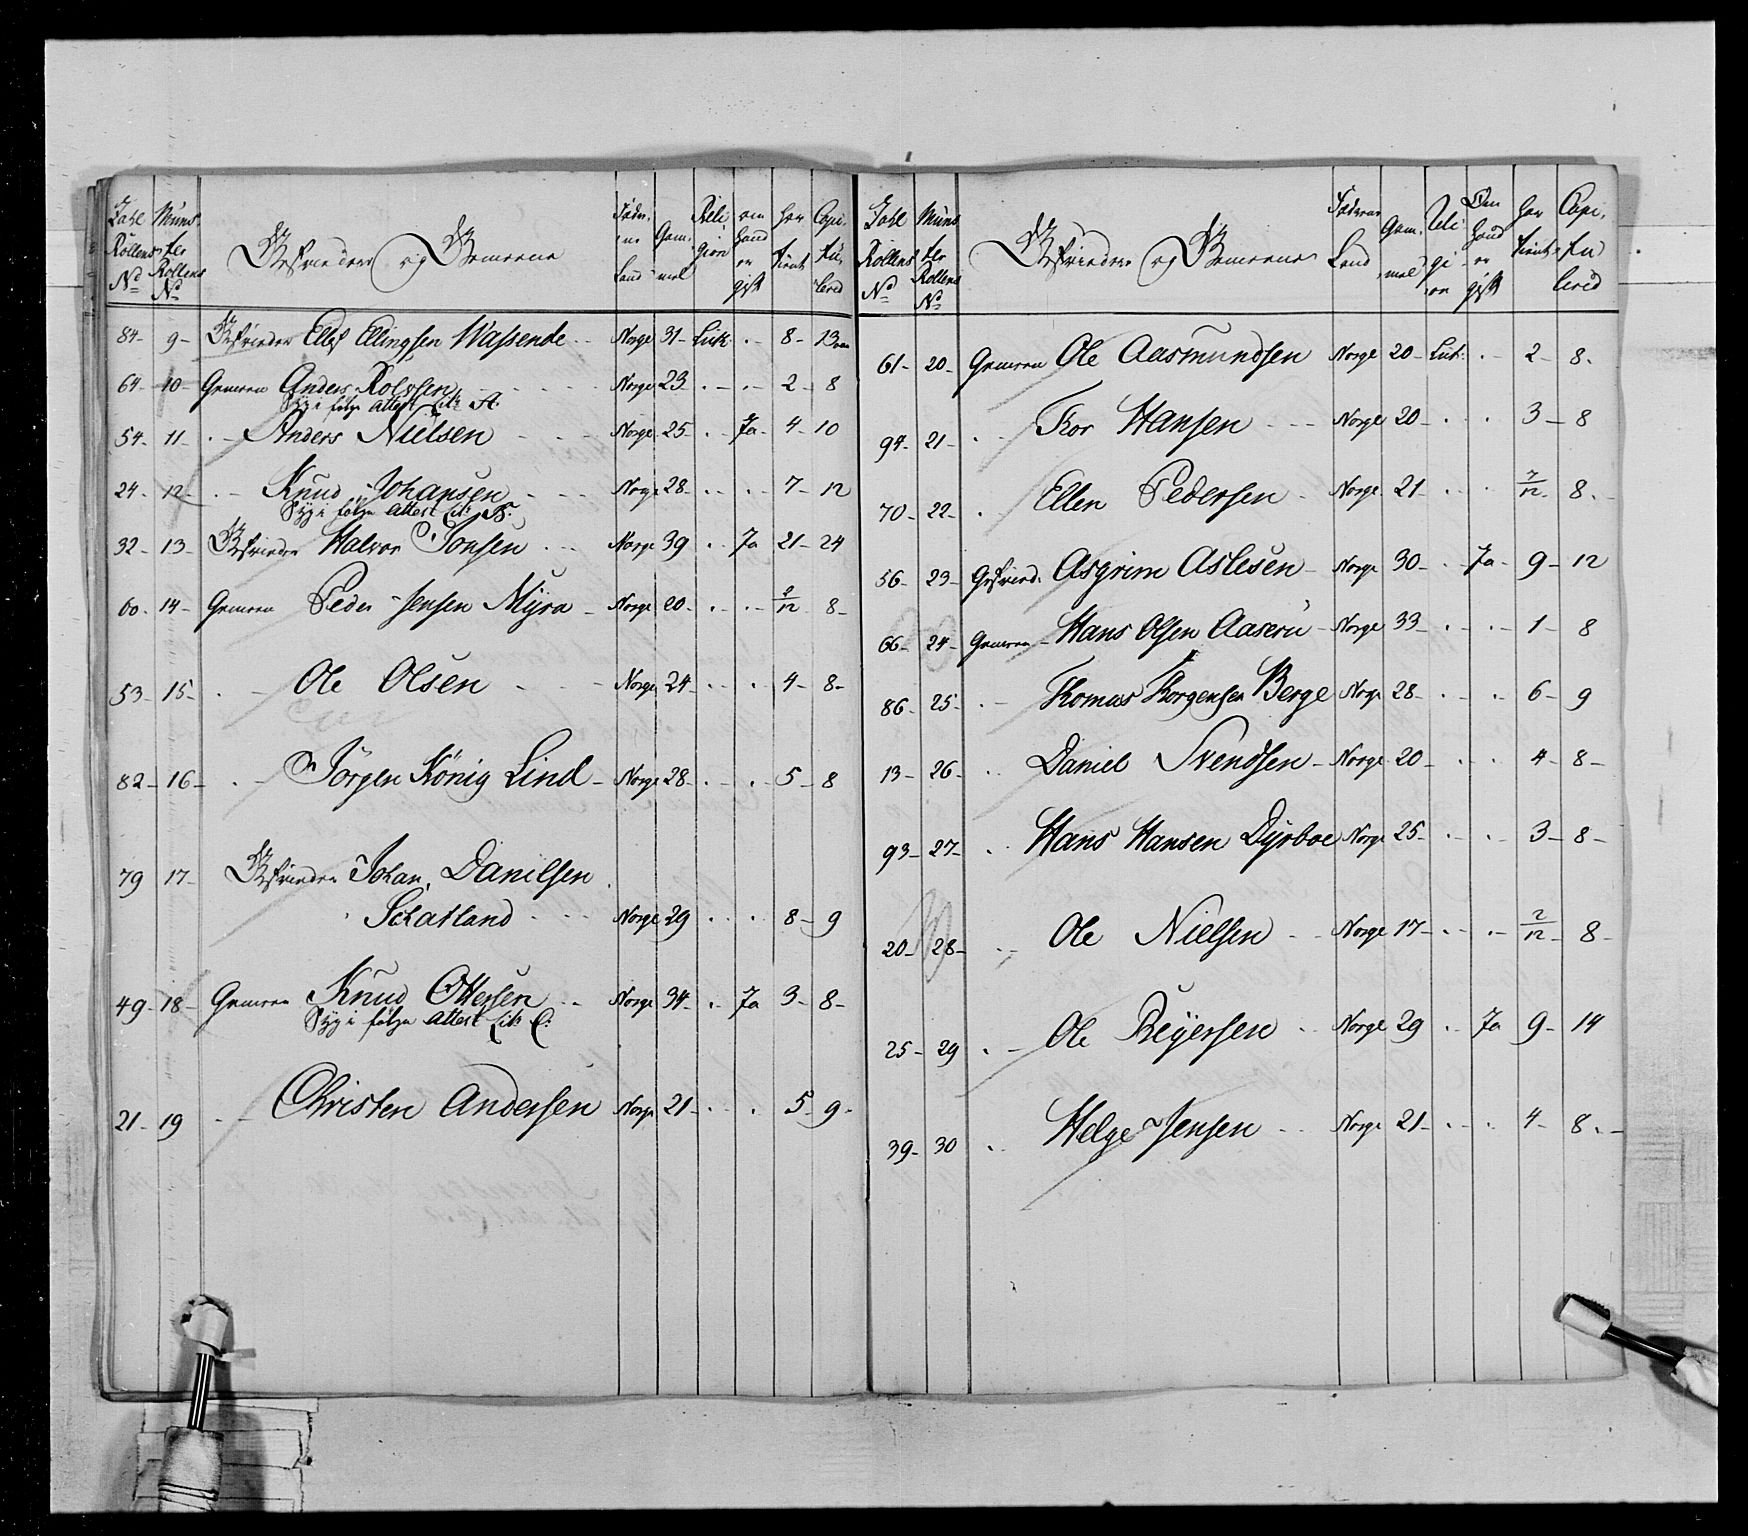 Zahl Rollens No | Münster Rollens No | Gefrieder og Gemeene | Fæderne Land | Gammel | Religion | om hand er gift | har tient | Capitulered
84 - 9 - Gefrieder Ellef Ellingsen Wassende - Norge 31 - Luth. - 8 - 13
64 - 10 - Gemeen Anders Rolvsen - Norge 23 - 2 - 8
Syg i følge Attest Litr A.
54 - 11 - Anders Nielsen - Norge 25 - Ja - 4 - 10
24 - 12 - Knud Johansen - Norge 28 - 7 - 12
Syg i følge Attest Litr B.
32 - 13 - Gefrieder Halvor Jonsen - Norge 39 - Ja 21 - 24
60 - 14 - Gemeen Peder Jensen Myra - Norge 20 - 2/12 8 -
53 - 15 - Ole Olsen - Norge 24 - 4 - 8 -
82 - 16 - Jörgen König Lind - Norge 28 - 5 - 8
79 17 - Gefrieder Johan Danilsen
Schatland - Norge 29 - 8 - 9
49 - 18 - Gemeen Knud Ottersen - Norge 34 - Ja 3 - 8 -
Syg i følge Attest Litr C:
21 - 19 - Christen Andersen Norge 21 - 5 - 9 -
Zahl Rollens No | Münster Rollens No | Gefrieder og Gemeene | Fæderne Land | Gammel | Religion | Om hand er gift | har tient | Capitulered
61 - 20 - Gemeen Ole Aasmundsen Norge 20 - Luth. - 2 - 8 -
94 - 21 - Tor Hansen - Norge 20 - 3 - 8
70 - 22 - Ellen Pedersen - Norge 21 - 7/12 8 -
56 - 23 - Gefried. Asgrim Aslesen - Norge 30 - Ja - 9 - 12
66 - 24 - Gemeen - Hans Olsen Aaserü - Norge 33 - 1 - 8
86 - 25 - Thomas Torgensen Berge Norge 28 - 6 - 9
13 - 26 - Daniel Svendsen - Norge 20 - 4 - 8 -
93 - 27 - Hans Hansen Dyrboe Norge 25 - 3 - 8 -
20 - 28 - Ole Nielsen - Norge 17 - 2/12 - 8 -
25 - 29 - Ole Reyersen - Norge 29 - Ja 9 - 14
39 - 30 - Helge Jensen - Norge 21 - 4 - 8 -